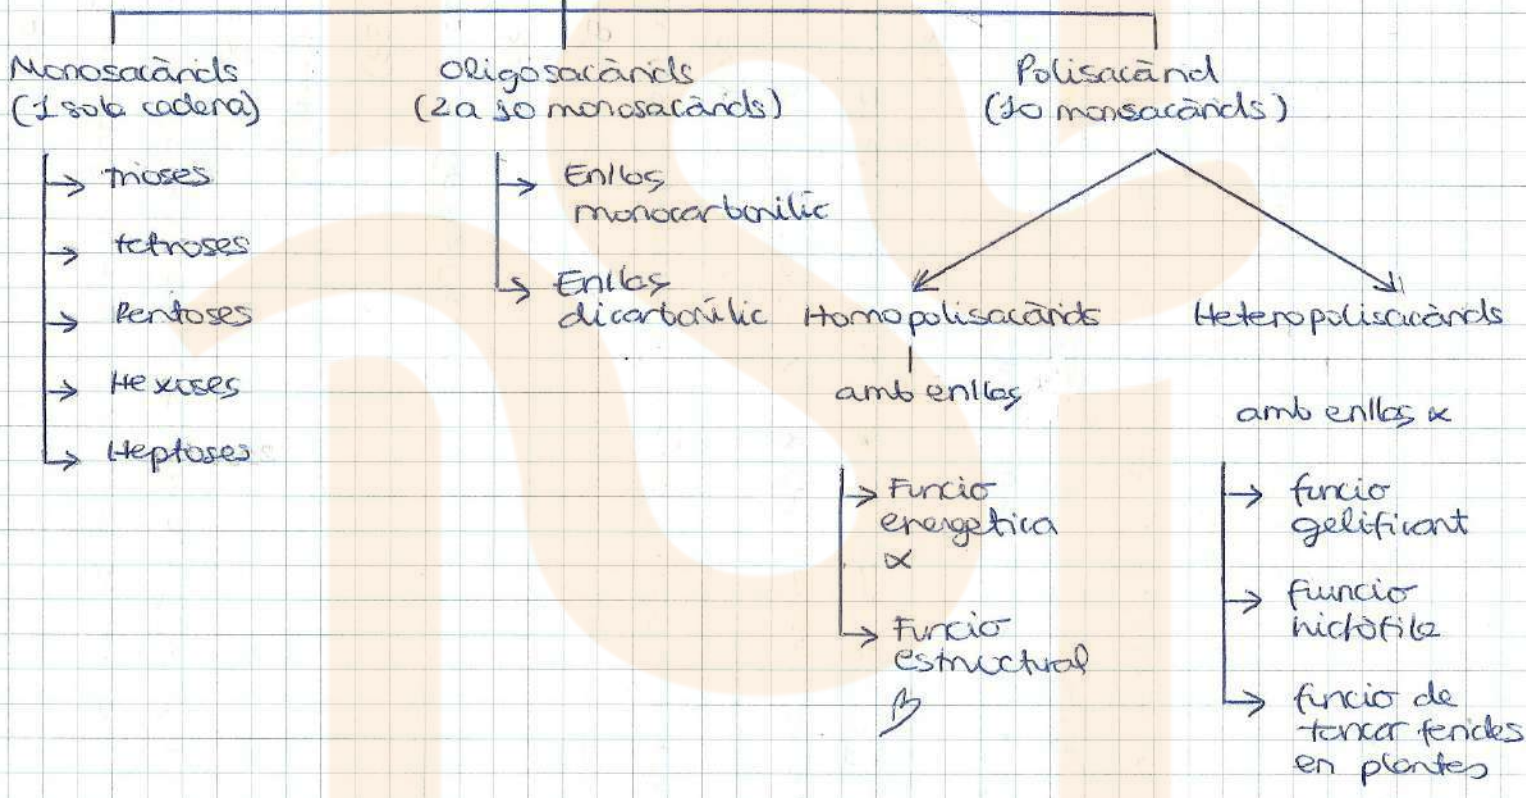 Monosacàrids
(1 sola cadena)
trioses
tetroses
Pentoses
Hexoses
Heptoses
Oligosacàrids
(2 a 10 monosacàrids)
Enllaç
monocarbonílic
Enllaç
dicarbonílic
Polisacàrid
(10 monsacàrids)
Homopolisacàrids
amb enllaç
Funcio
energetica
α
Funcio
estructural
β
Heteropolisacàrids
amb enllaç α
funcio
gelificant
fuuncio
hidròfila
funcio de
tancar ferides
en plantes